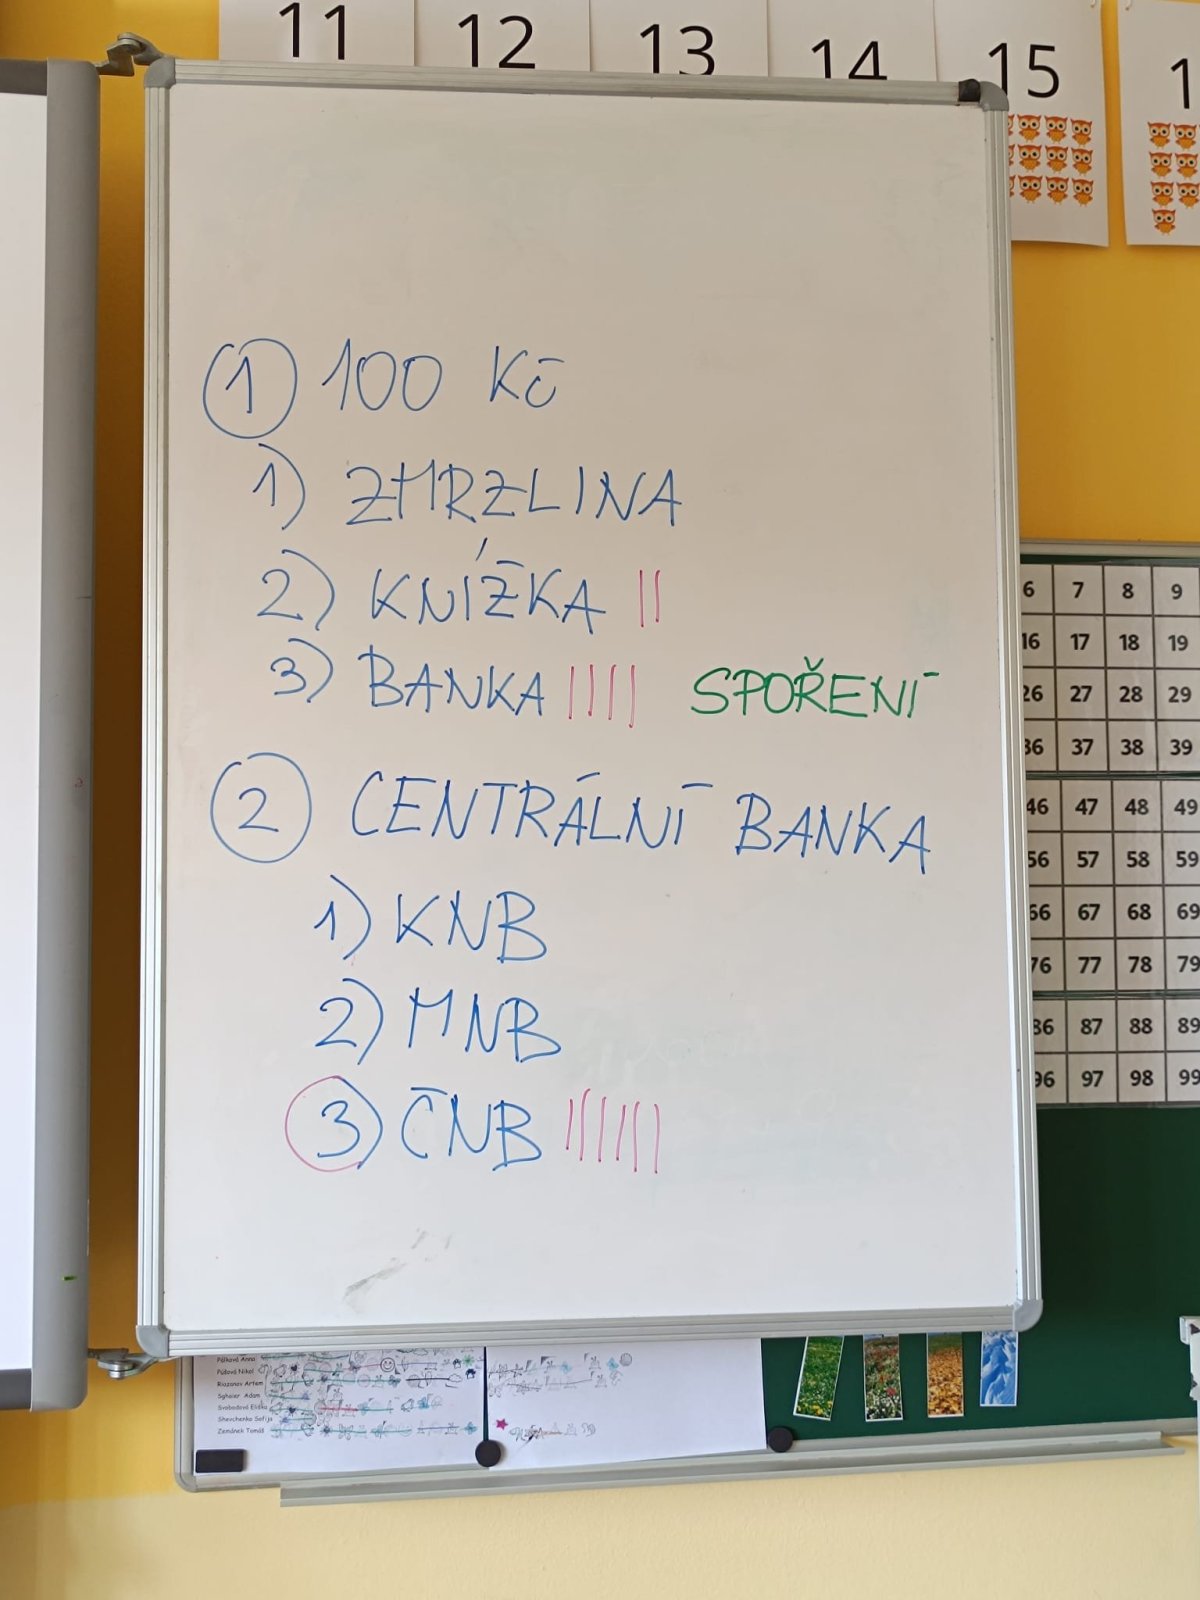 11 12 13 14 15 1
① 100 Kč
1) ZMRZLINA
2) KNÍŽKA ||
3) BANKA |||| SPOŘENÍ
② CENTRÁLNÍ BANKA
1) KNB
2) MNB
3) ČNB ||||||
6 7 8 9
16 17 18 19
26 27 28 29
36 37 38 39
46 47 48 49
56 57 58 59
66 67 68 69
76 77 78 79
86 87 88 89
96 97 98 99
Pálková Anna
Púlová Nikol
Riazanov Artem
Sghaier Adam
Svobodová Eliška
Shevchenko Sofija
Zemánek Tomáš